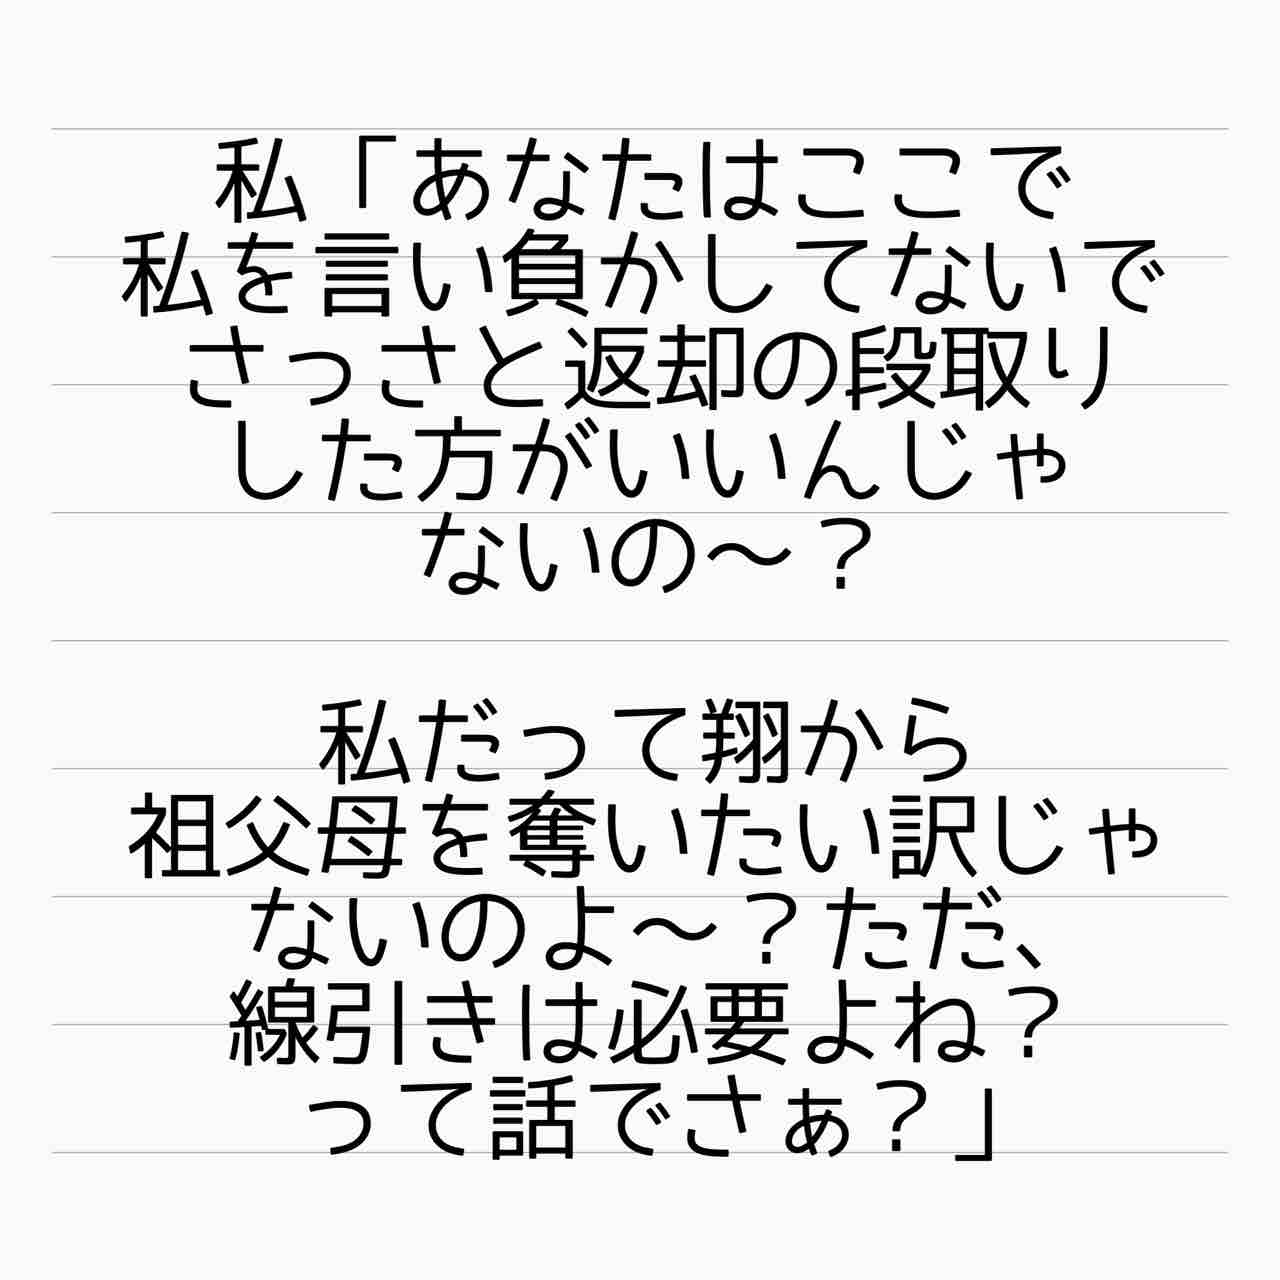 私「あなたはここで
私を言い負かしてないで
さっさと返却の段取り
した方がいいんじゃ
ないの〜？
私だって翔から
祖父母を奪いたい訳じゃ
ないのよ〜？ただ、
線引きは必要よね？
って話でさぁ？」